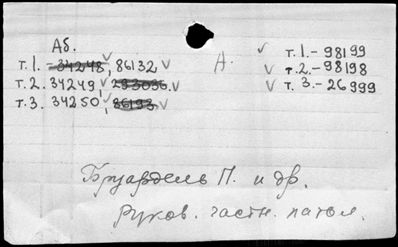 Аб.
т. 1. - 34248, 86132
т. 2. 34249 293096
т. 3. 34250, 86193
А.
т. 1. - 98199
т. 2. - 98198
т. 3. - 26999
Бруардель П. и др.
Руков. частн. патол.